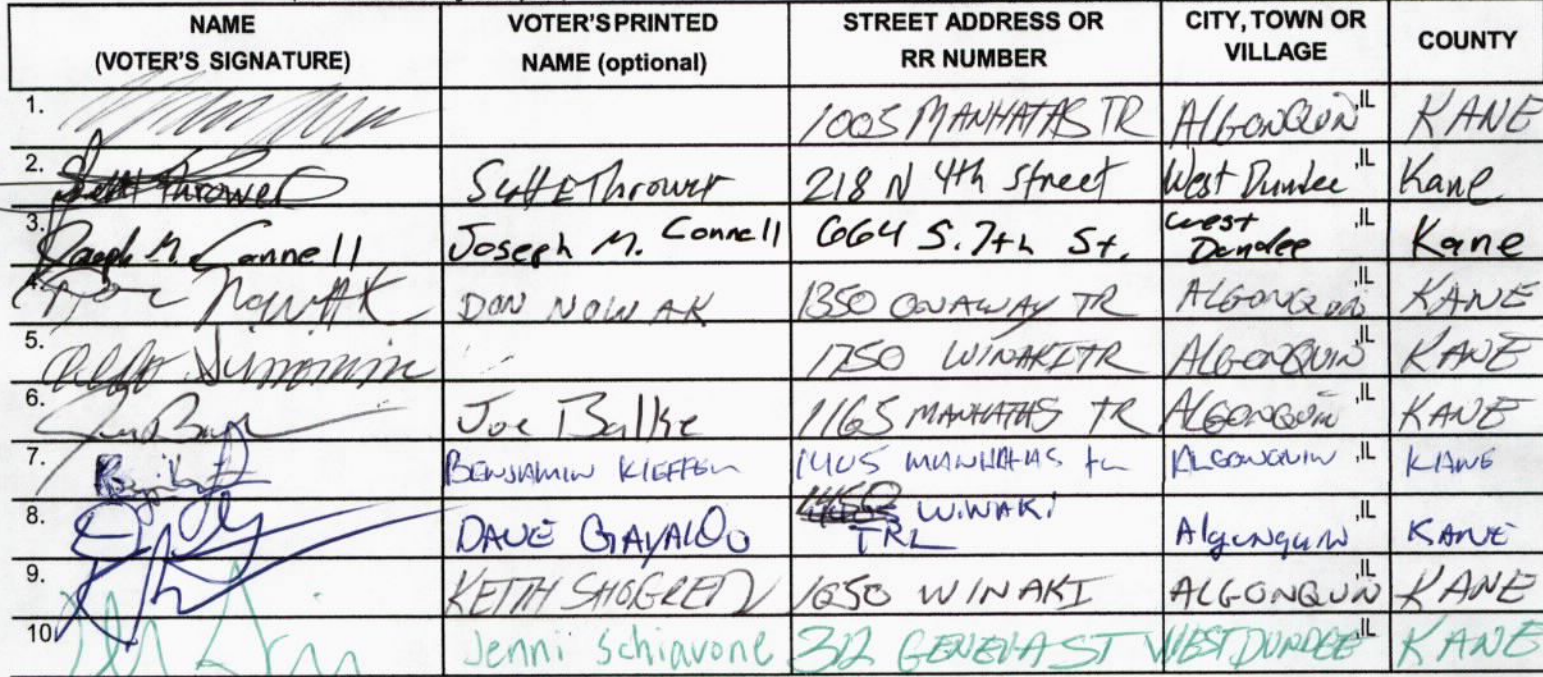 NAME (VOTER'S SIGNATURE) VOTER'S PRINTED NAME (optional) STREET ADDRESS OR RR NUMBER CITY, TOWN OR VILLAGE COUNTY
1. 1005 MANHATAS TR ALGONQUIN ,IL KANE
2. Thrower Thrower 218 N 4th Street West Dundee ,IL Kane
3. Joseph M. Connell Joseph M. Connell 664 S. 7th St. West Dundee ,IL Kane
4. Don Nowak DON NOWAK 1350 ONAWAY TR ALGONQUIN ,IL KANE
5. 1750 WINAKI TR ALGONQUIN ,IL KANE
6. Joe Balke 1165 MANHATAS TR ALGONQUIN ,IL KANE
7. BENJAMIN KIEFFER 1405 ALGONQUIN ,IL KANE
8. DAVE GAYALDO WINAKI TRL Algonquin ,IL KANE
9. KEITH SHOGREN 1650 WINAKI ALGONQUIN ,IL KANE
10. Jenni Schiavone 312 GENEVA ST WEST DUNDEE ,IL KANE